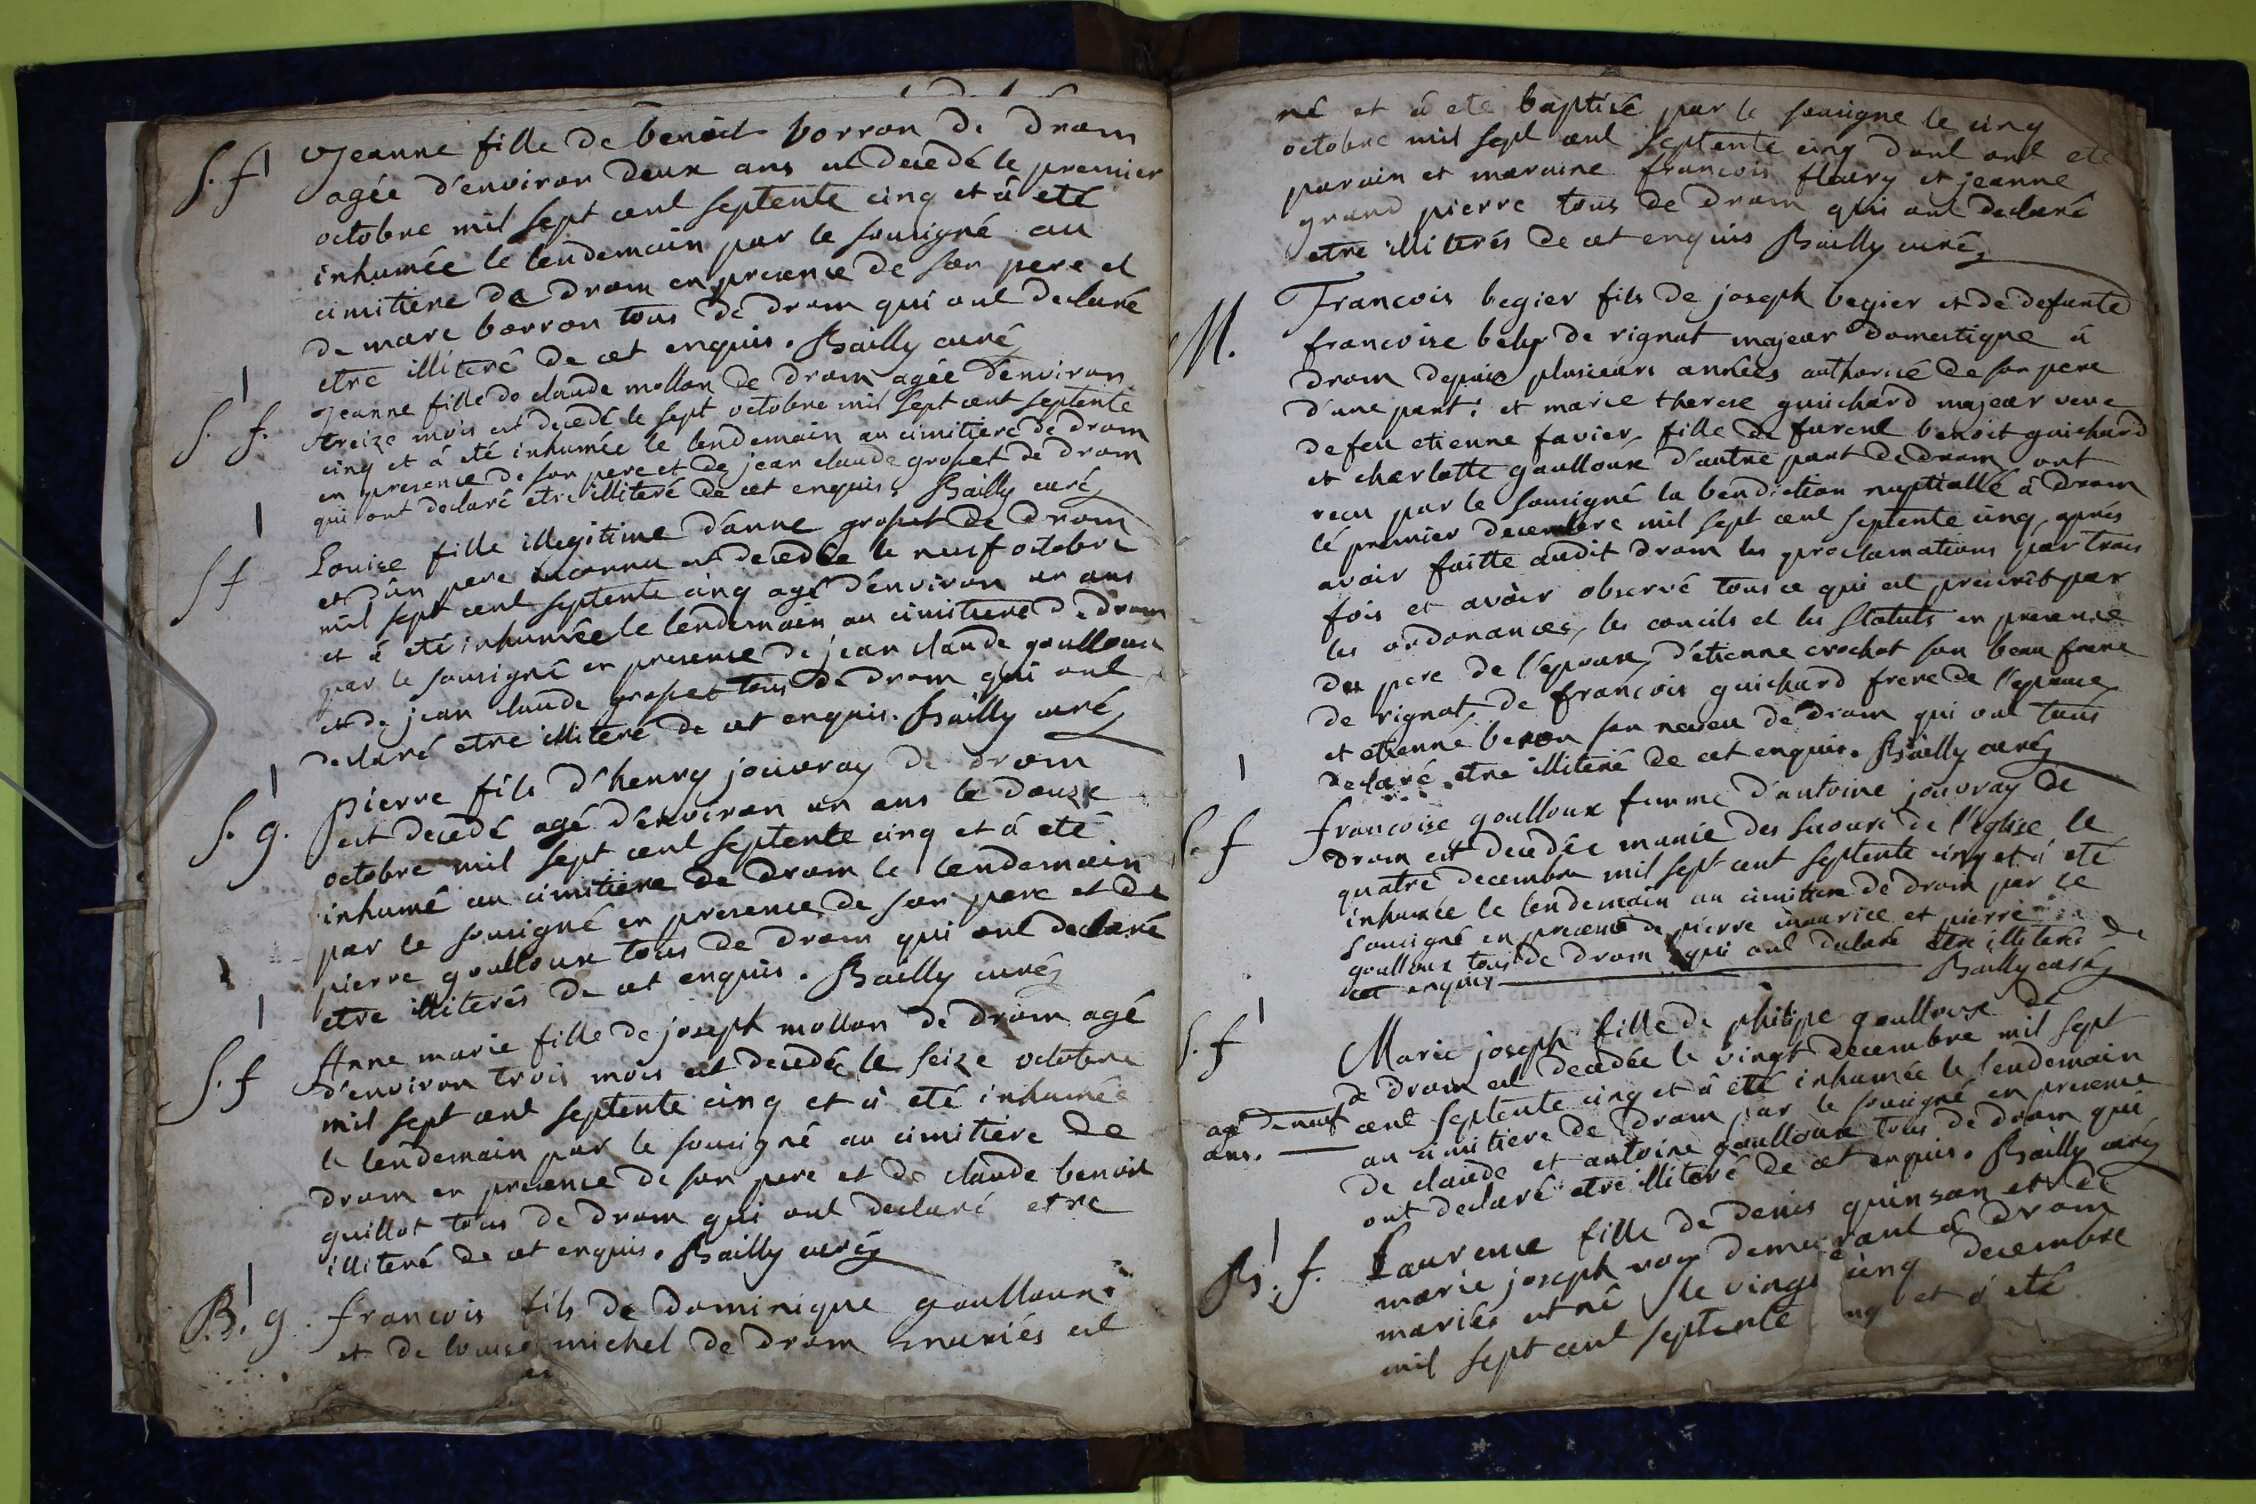 S. f Jeanne fille de benoit borron de drom
agée d'environ deux ans est decedé le premier
octobre mil sept cent septente cinq et à eté
inhumée le lendemain par le sousigné au
cimitiere de drom en presence de son pere et
de marc borron tous de drom qui ont declaré
etre illiteré de cet enquis. Bailly curé
S. f. Jeanne fille de claude mollon de drom agée d'environ
treize mois est decedé le sept octobre mil sept cent septente
cinq et à eté inhumée le lendemain au cimitiere de drom
en presence de son pere et de jean claude grosset de drom
qui ont declaré etre illiteré de cet enquis. Bailly curé
S f Louise fille illegitime d'anne grosset de drom
et d'un pere inconnu est decedée le neuf octobre
mil sept cent septente cinq agé d'environ un ans
et à eté inhumée le lendemain au cimitiere de drom
par le sousigné en presence de jean claude goulloux
et de jean claude grosset tous de drom qui ont
declaré etre illiteré de cet enquis. Bailly curé
S. g. Pierre fils d'henry jouvray de drom
est decedé agé d'environ un ans le douze
octobre mil sept cent septente cinq et à eté
inhumé au cimitiere de drom le lendemain
par le sousigné en presence de son pere et de
pierre goulloux tous de drom qui ont declaré
etre illiterés de cet enquis. Bailly curé
S. f Anne marie fille de joseph mollon de drom agé
d'environ trois mois est decedée le seize octobre
mil sept cent septente cinq et à eté inhumée
le lendemain par le sousigné au cimitiere de
drom en presence de son pere et de claude benoit
guillot tous de drom qui ont declaré etre
illiteré de cet enquis. Bailly curé
B. g. francois fils de dominique goulloux
et de louise michel de drom mariés est
né et à eté baptisé par le sousigné le cinq
octobre mil sept cent septente cinq dont ont eté
parain et maraine francois fleury et jeanne
grand pierre tous de drom qui ont declaré
etre illiterés de cet enquis Bailly curé
M. Francois begier fils de joseph begier et de defunte
francoise de rignat majeur domestique à
drom depuis plusieurs années authorisé de son pere
d'une part; et marie therese guichard majeur veuve
de feu etienne favier, fille de furent benoit guichard
et charlotte goulloux d'autre part de drom, ont
recu par le sousigné la bendiction nuptiallé à drom
le premier decembre mil sept cent septente cinq, aprés
avoir faitte audit drom les proclamations par trois
fois et avoir observé tous ce qui est prescrit par
les ordonances, les concils et les Statuts en presence
du pere de l'epoux, d'etienne crochet son beau frere
de rignat, de francois guichard frere de l'epouse
et etienne beron son neveu de drom qui ont tous
declaré etre illiteré de cet enquis. Bailly curé
S. f francoise goulloux femme d'antoine jouvray de
drom est decedée munie des secours de l'eglise le
quatre decembre mil sept cent septente cinq et à eté
inhumée le lendemain au cimitiere de drom par le
sousigné en presence de pierre maurice et pierre
goulloux tous de drom qui ont declaré etre illiteré de
cet enquis Bailly curé
S. f Marie joseph fille de philipe goulloux de
de drom est decedée le vingt decembre mil sept
agé de neuf ans. cent septente cinq et à eté inhumée le lendemain
au cimitiere de drom par le sousigné en presence
de claude et antoine goulloux tous de drom qui
ont declaré etre illiteré de cet enquis. Bailly curé
B. f. Laurence fille de denis quinson et de
marie joseph roy demeurant à drom
mariés est né le vingt cinq decembre
mil sept cent septente et à eté